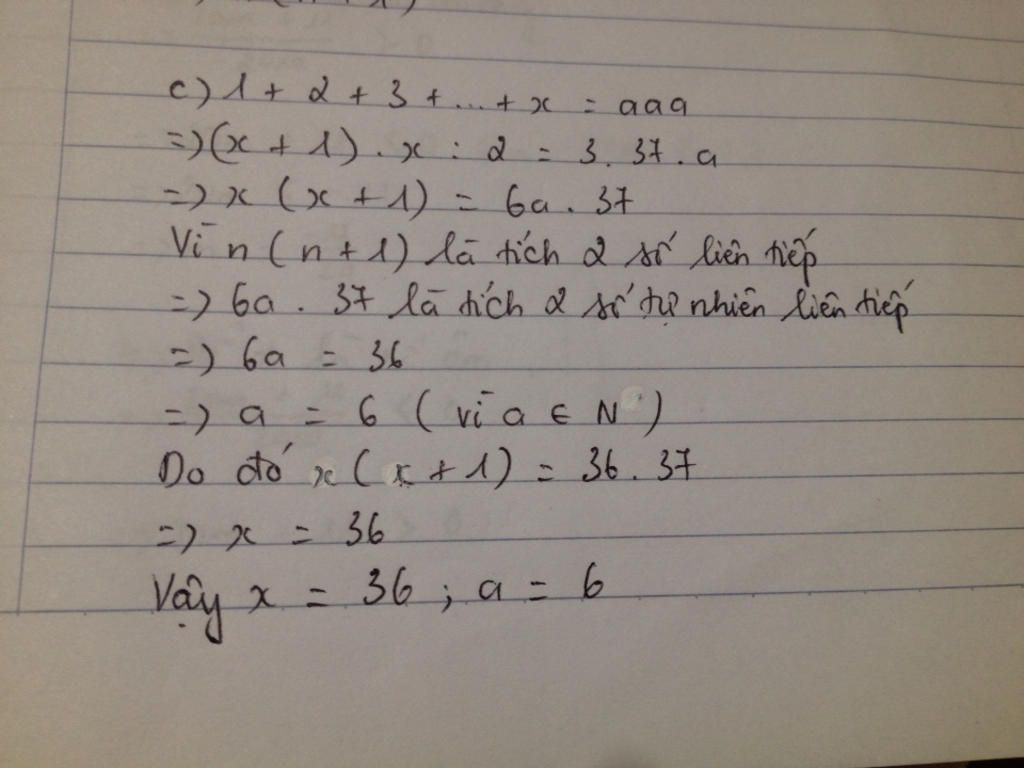 c) 1 + 2 + 3 + ... + x = aaa
=> (x + 1) . x : 2 = 3 . 37 . a
=> x (x + 1) = 6a . 37
Vì n (n + 1) là tích 2 số liên tiếp
=> 6a . 37 là tích 2 số tự nhiên liên tiếp
=> 6a = 36
=> a = 6 (vì a ∈ N)
Do đó x (x + 1) = 36 . 37
=> x = 36
Vậy x = 36 ; a = 6